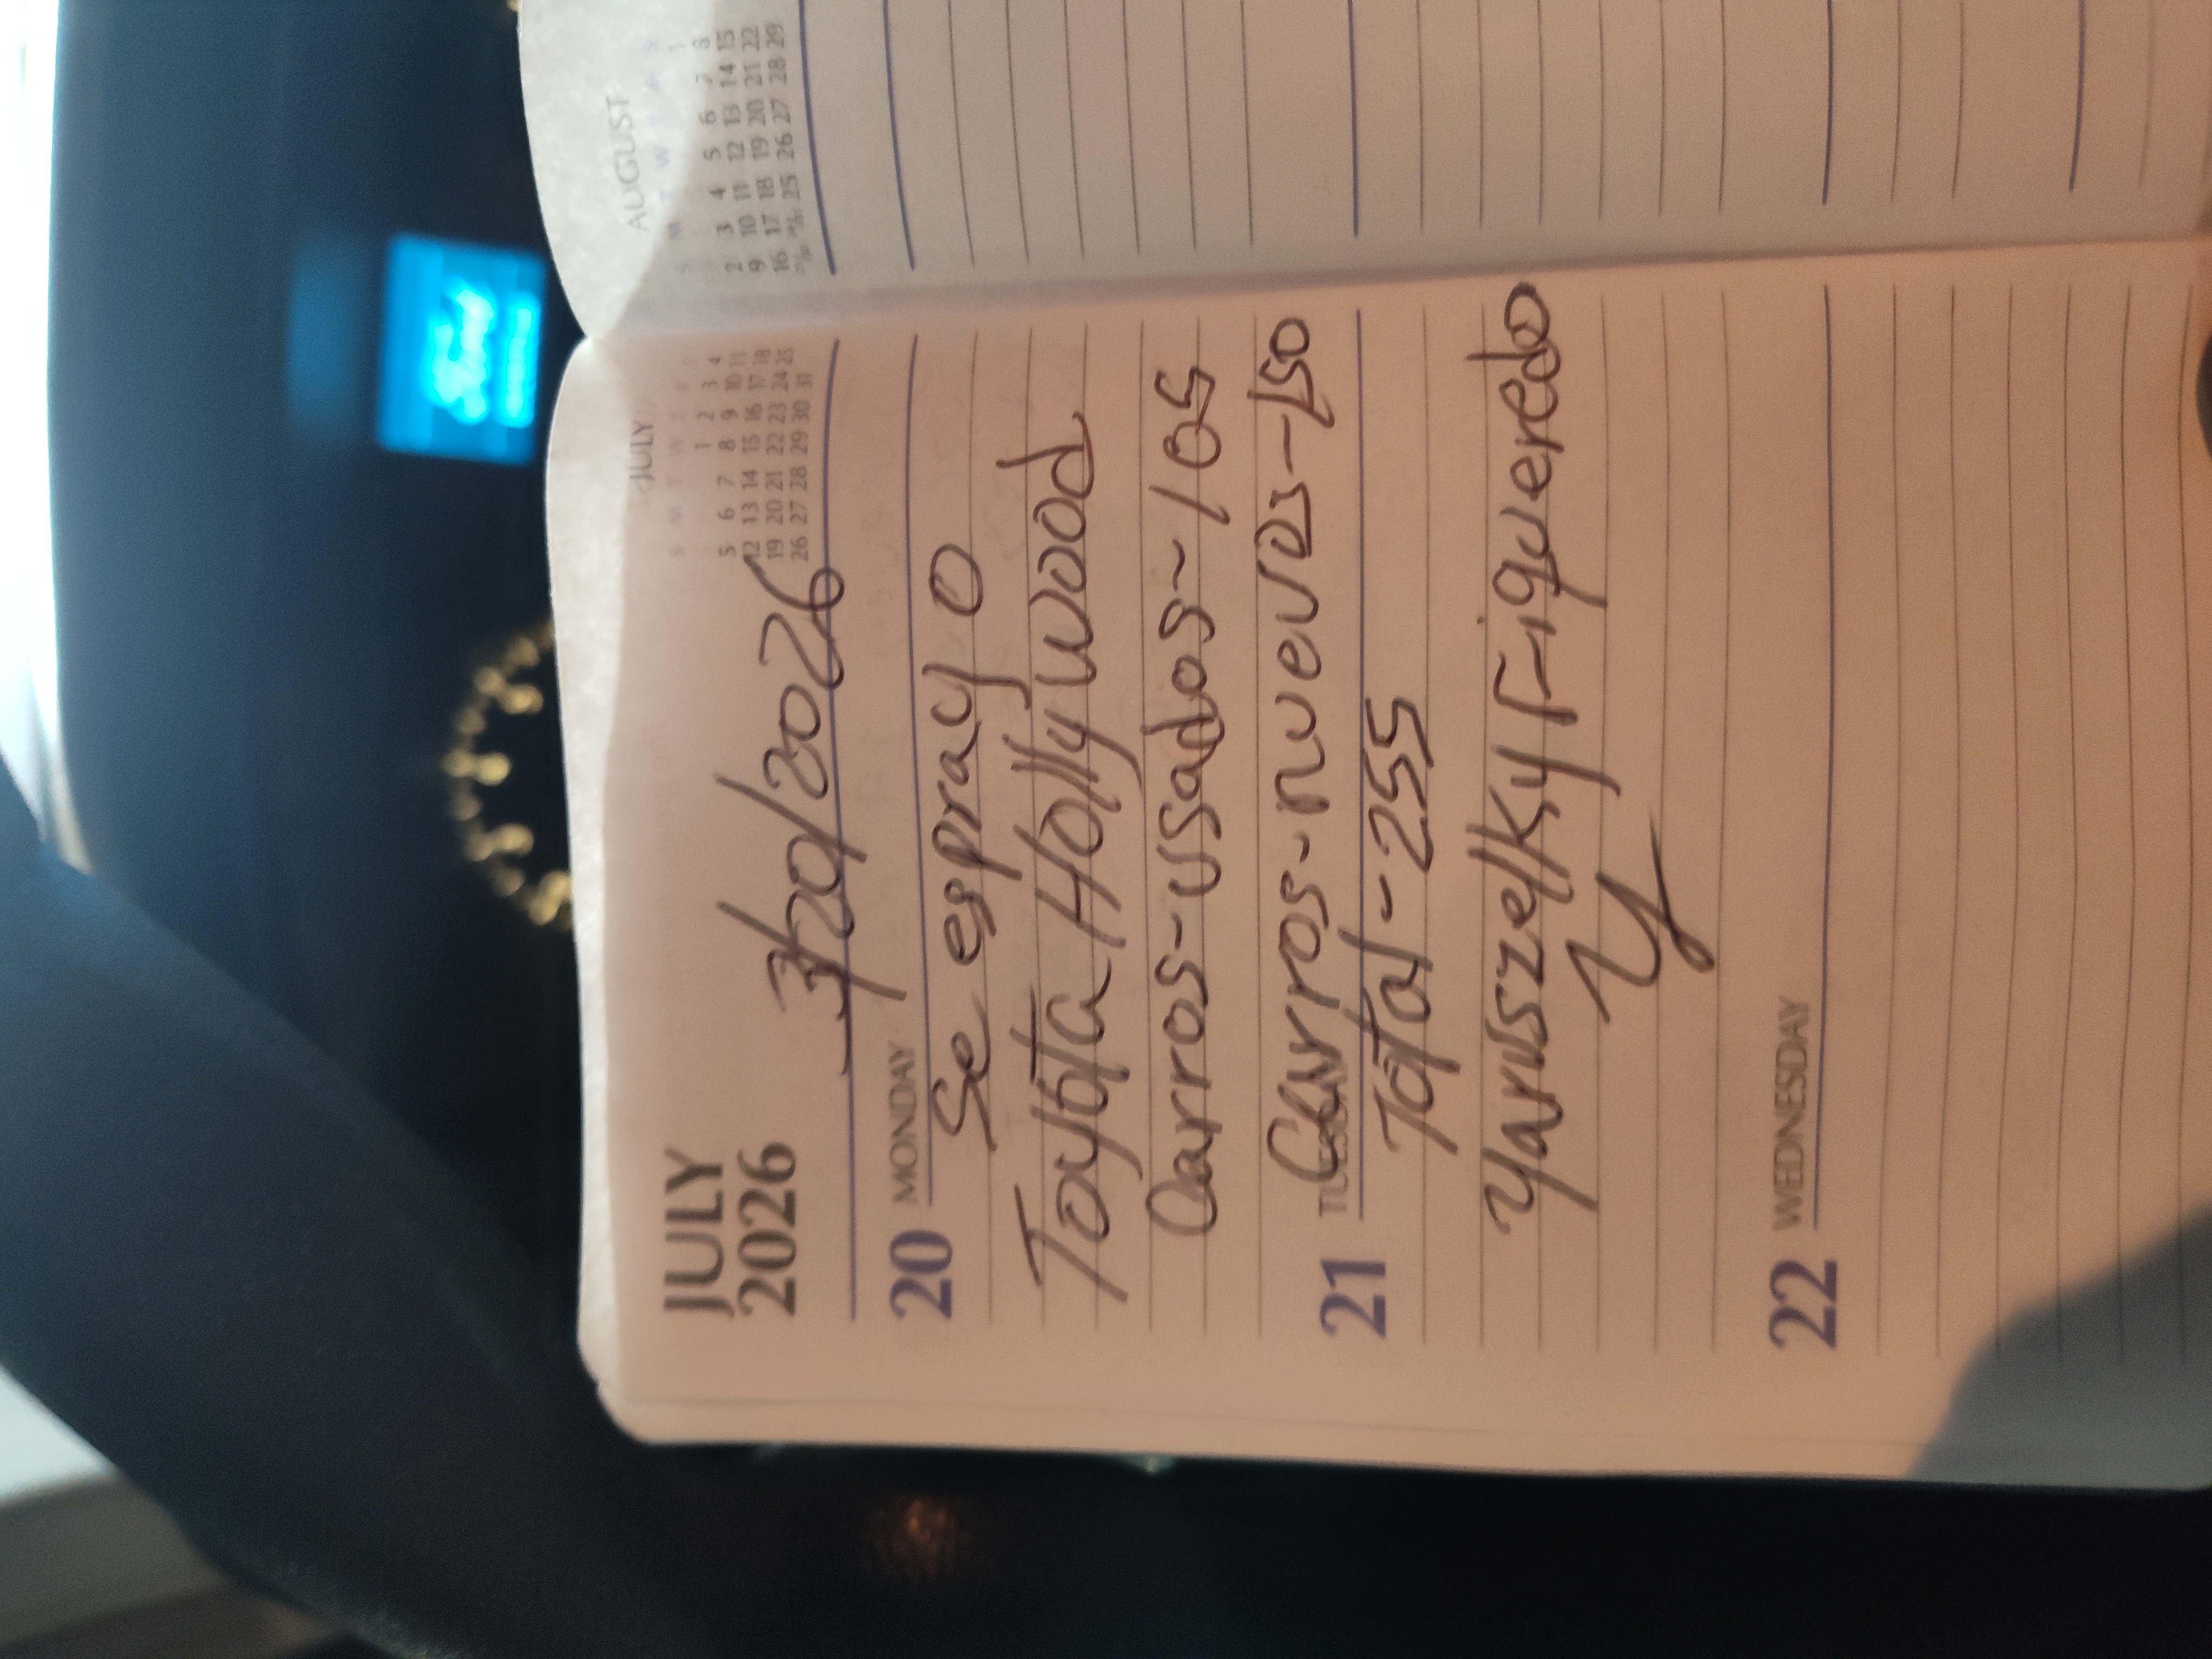 JULY
2026
3/20/2026
JULY
S M T W T F S
1 2 3 4
5 6 7 8 9 10 11
12 13 14 15 16 17 18
19 20 21 22 23 24 25
26 27 28 29 30 31
20 MONDAY
Se esprayo
Toyota Hollywood
Carros-usados-105
Carros-nuevos-150
21 TUESDAY
Total-255
Yaniszelky Figueredo
22 WEDNESDAY
AUGUST
S M T W T F S
1
2 3 4 5 6 7 8
9 10 11 12 13 14 15
16 17 18 19 20 21 22
23/30 24/31 25 26 27 28 29